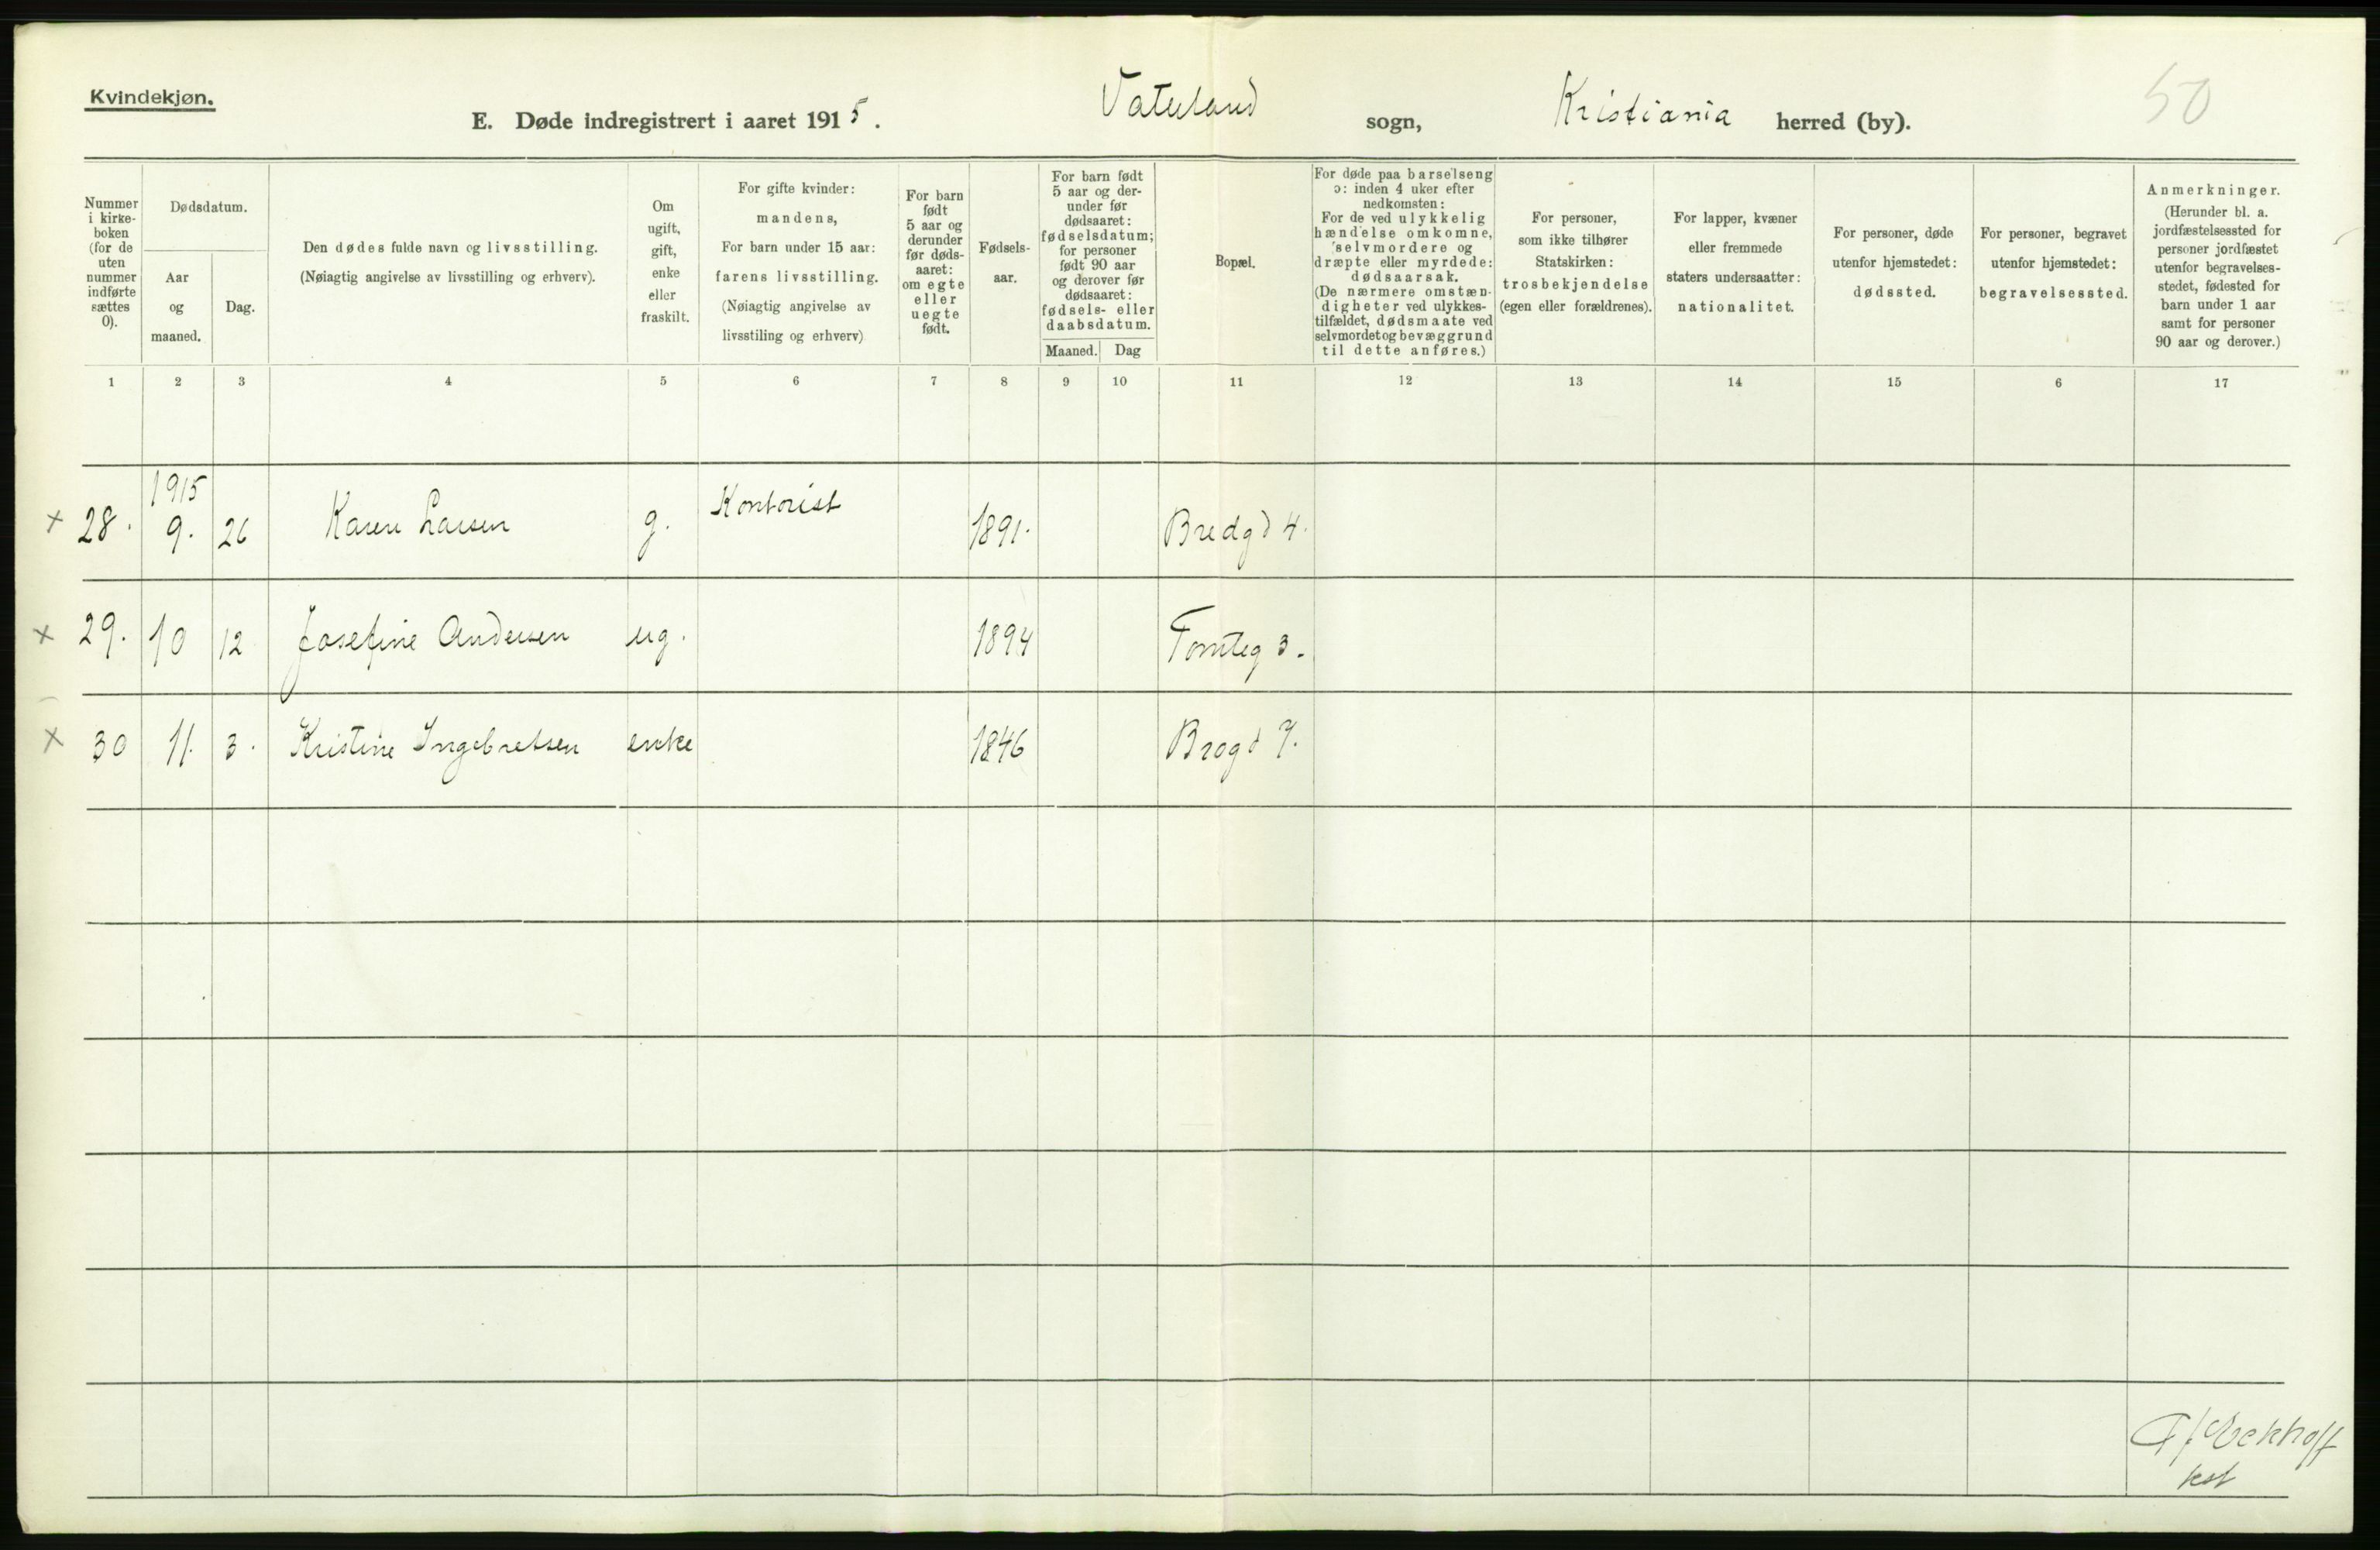 Kvindekjøn.
E. Døde indregistrert i aaret 1915. Vaterland sogn, Kristiania herred (by). 50
Nummer
i kirke-
boken
(for de
uten
nummer
indførte
sættes
0).
Dødsdatum.
Aar
og
maaned.
Dag.
Den dødes fulde navn og livsstilling.
(Nøiagtig angivelse av livsstilling og erhverv).
Om
ugift,
gift,
enke
eller
fraskilt.
For gifte kvinder:
mandens,
For barn under 15 aar:
farens livsstilling.
(Nøiagtig angivelse av
livsstiling og erhverv)
For barn
født
5 aar og
derunder
før døds-
aaret:
om egte
eller
uegte
født.
Fødsels-
aar.
For barn født
5 aar og der-
under før
dødsaaret:
fødselsdatum;
for personer
født 90 aar
og derover før
dødsaaret:
fødsels- eller
daabsdatum.
Maaned. Dag
Bopæl.
For døde paa barselseng
ɔ: inden 4 uker efter
nedkomsten:
For de ved ulykkelig
hændelse omkomne,
selvmordere og
dræpte eller myrdede:
dødsaarsak.
(De nærmere omstæn-
digheter ved ulykkes-
tilfældet, dødsmaate ved
selvmordet og bevæggrund
til dette anføres.)
For personer,
som ikke tilhører
Statskirken:
trosbekjendelse
(egen eller forældrenes).
For lapper, kvæner
eller fremmede
staters undersaatter:
nationalitet.
For personer, døde
utenfor hjemstedet:
dødssted.
For personer, begravet
utenfor hjemstedet:
begravelsessted.
Anmerkninger.
(Herunder bl. a.
jordfæstelsessted for
personer jordfæstet
utenfor begravelses-
stedet, fødested for
barn under 1 aar
samt for personer
90 aar og derover.)
1 2 3 4 5 6 7 8 9 10 11 12 13 14 15 6 17
1915
× 28. 9. 26 Karen Larsen g. Kontorist 1891. Bredgd 4.
× 29. 10 12 Josefine Andersen ug. 1894 Tomteg 3.
× 30 11. 3. Kristine Ingebretsen enke 1846 Brogd 7.
Eckhoff